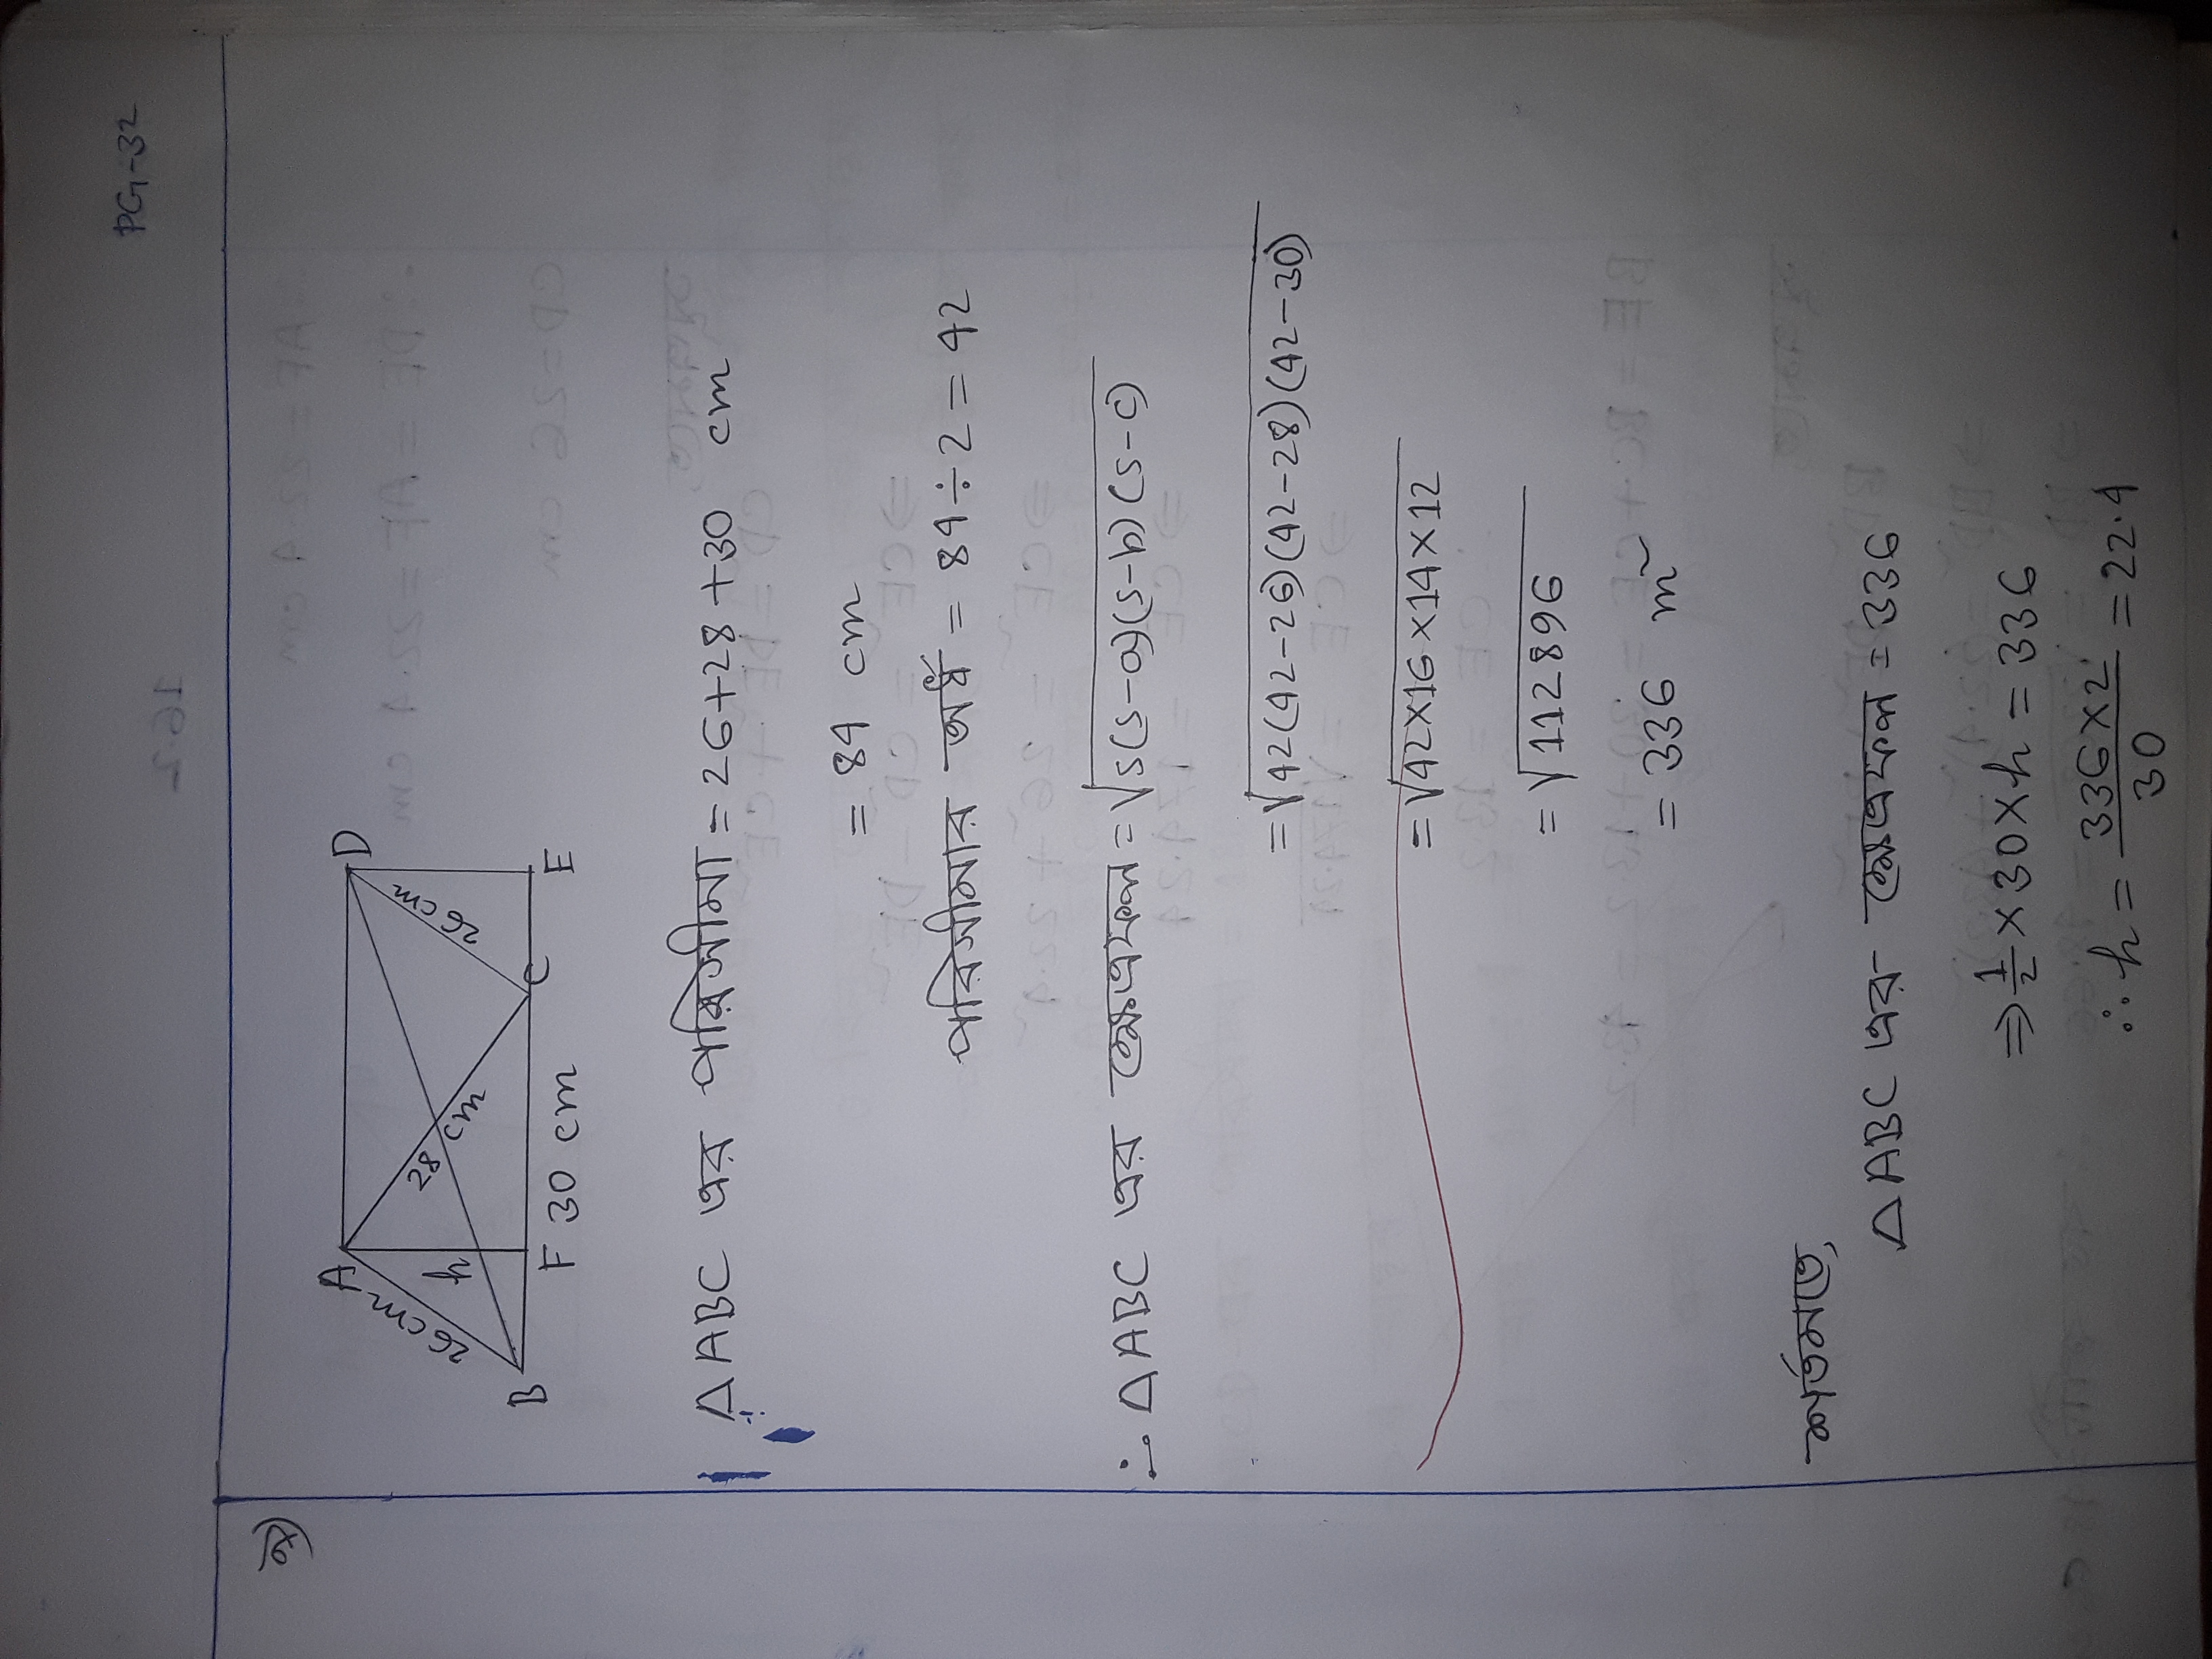 PG-32
16.2
২)
A
D
26 cm
h
28 cm
26 cm
B
F 30 cm
C
E
△ABC এর পরিসীমা = 26+28+30 cm
= 84 cm
পরিসীমার অর্ধ = 84÷2 = 42
∴ △ABC এর ক্ষেত্রফল = √s(s-a)(s-b)(s-c)
= √42(42-26)(42-28)(42-30)
= √42×16×14×12
= √112896
= 336 m²
শর্তমতে,
△ABC এর ক্ষেত্রফল = 336
⇒ 1/2 × 30 × h = 336
∴ h = 336×2/30 = 22.4